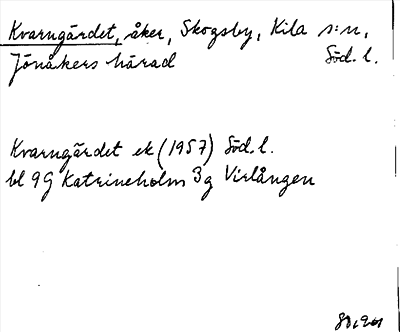 Kvarngärdet, åker, Skogsby, Kila s:n,
Jönåkers härad Söd. l.
Kvarngärdet ek (1957) Söd. l.
bl 9G Katrineholm 3g Virlången